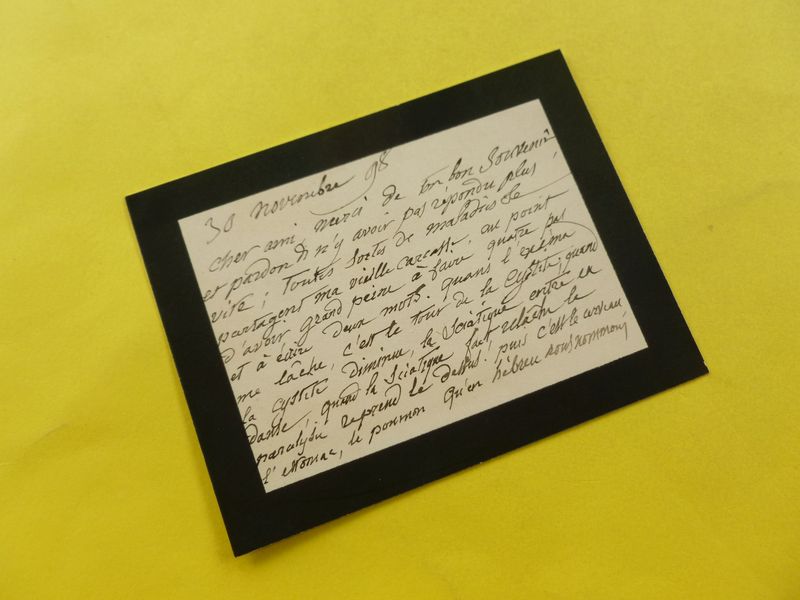 30 novembre 98
cher ami, merci de ton bon souvenir
et pardon de n'y avoir pas répondu plus
vite ; toutes sortes de maladies se
partagent ma vieille carcasse, au point
d'avoir grand peine à faire quatre pas
et à écrire deux mots. quand l'exéma
me lâche, c'est le tour de la cystite ; quand
la cystite diminue, la sciatique entre en
danse ; quand la sciatique fait relache la
paralysie reprend le dessus ; puis c'est le cerveau
l'estomac, le poumon qu'en hébreu nous nommons